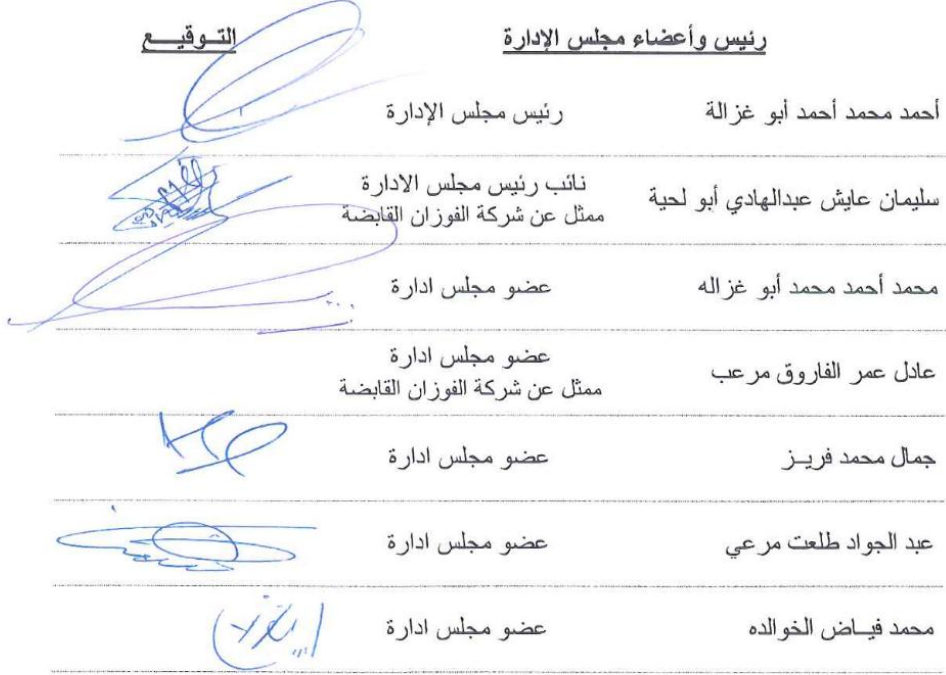 رئيس وأعضاء مجلس الإدارة التـوقيـــع
أحمد محمد أحمد أبو غزالة رئيس مجلس الإدارة
سليمان عايش عبدالهادي أبو لحية نائب رئيس مجلس الادارة
ممثل عن شركة الفوزان القابضة
محمد أحمد محمد أبو غزاله عضو مجلس ادارة
عادل عمر الفاروق مرعب عضو مجلس ادارة
ممثل عن شركة الفوزان القابضة
جمال محمد فريــز عضو مجلس ادارة
عبد الجواد طلعت مرعي عضو مجلس ادارة
محمد فيــاض الخوالده عضو مجلس ادارة